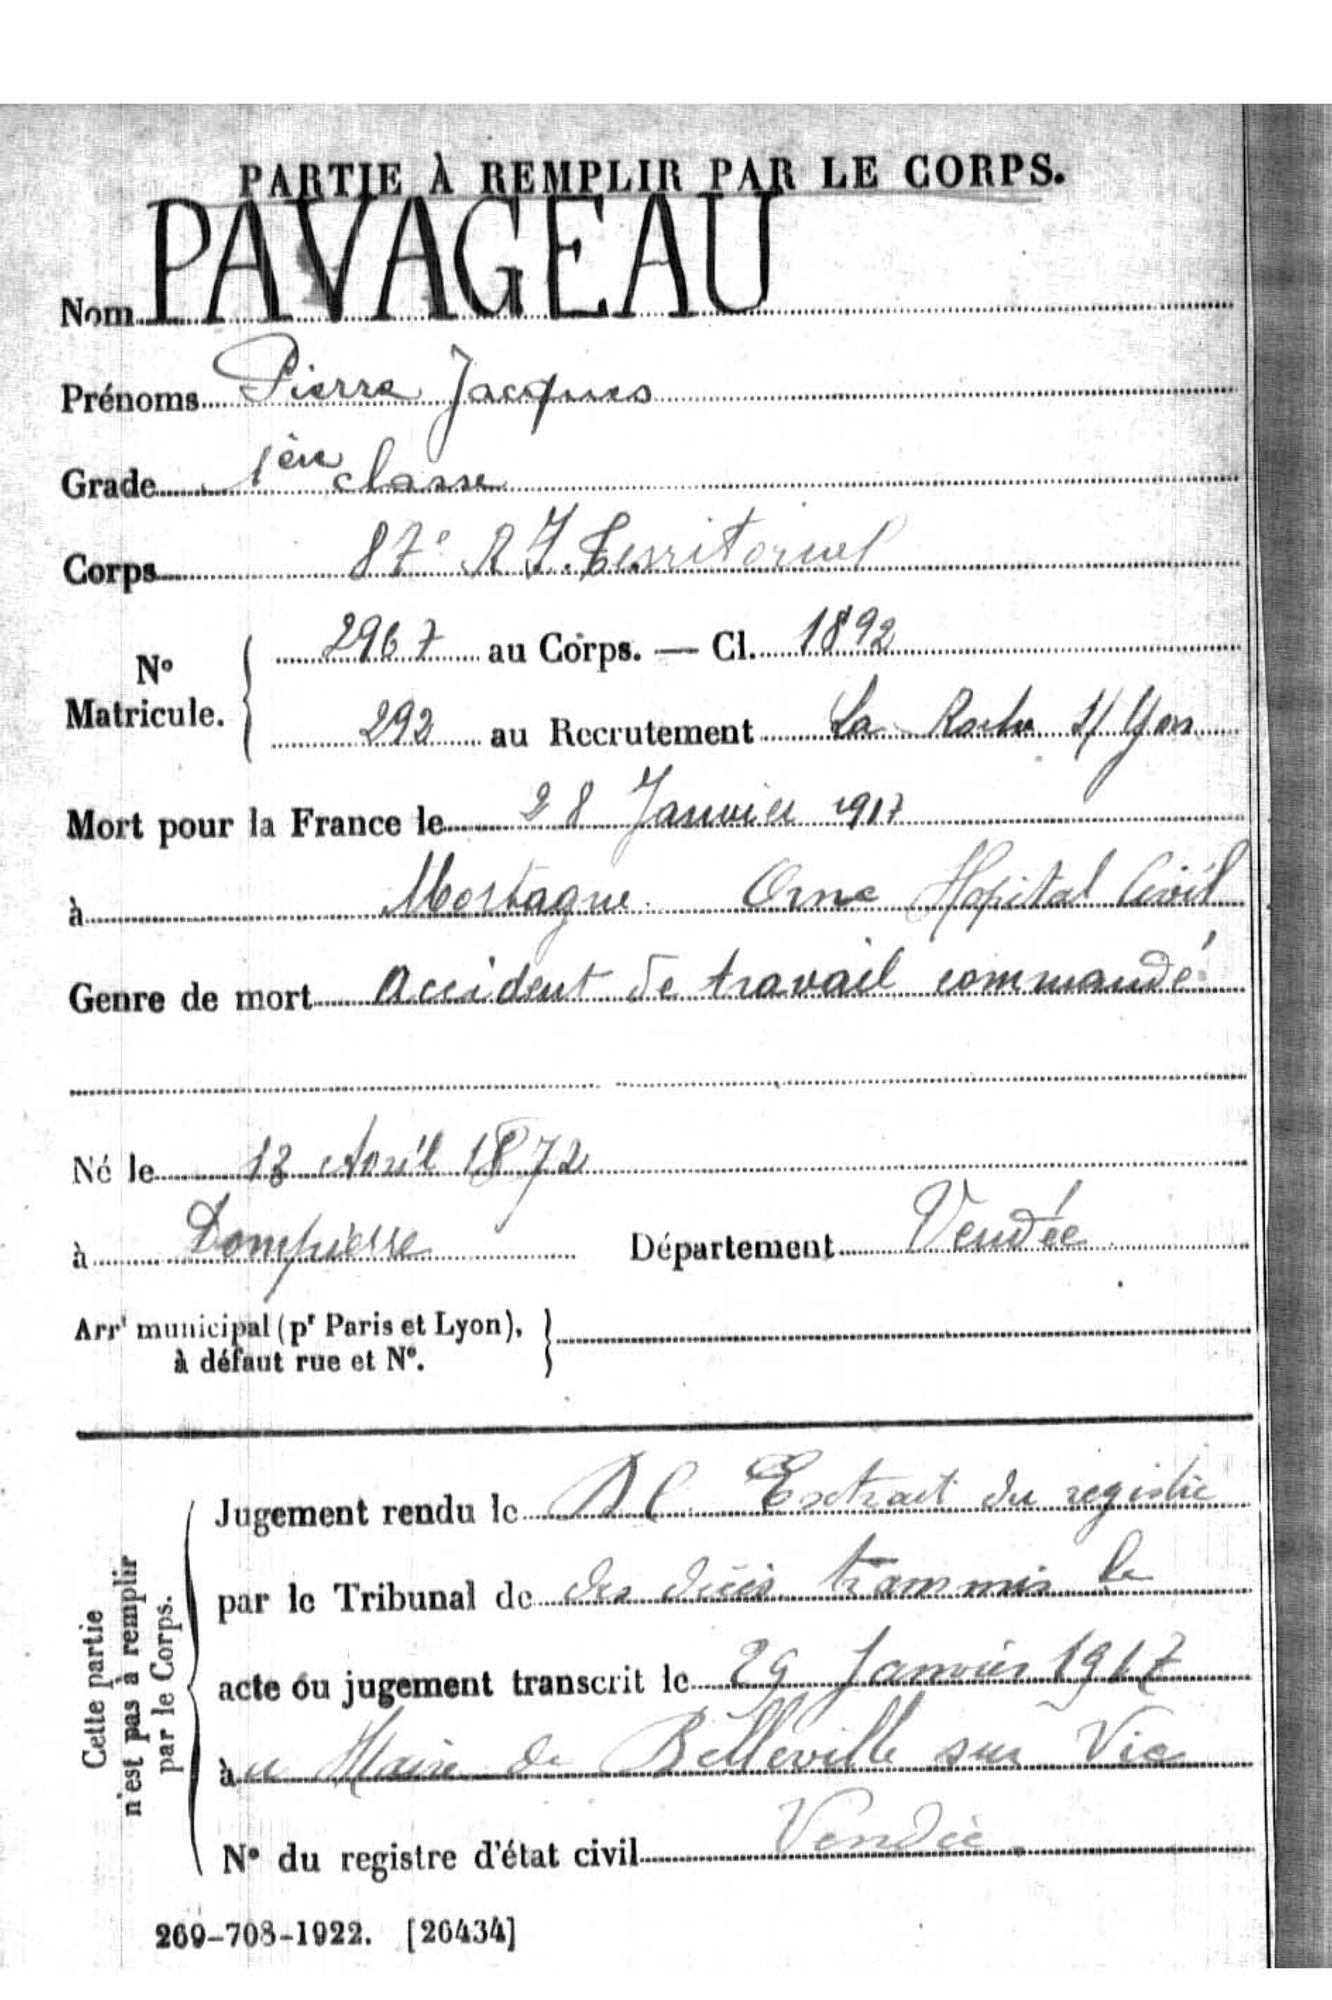 PARTIE À REMPLIR PAR LE CORPS.
Nom PAVAGEAU
Prénoms Pierre Jacques
Grade 1ère classe
Corps 87e R I. Territorial
N° Matricule. { 2967 au Corps. — Cl. 1892
292 au Recrutement La Roche s/ Yon
Mort pour la France le 28 Janvier 1917
à Mortagne Orne Hopital Civil
Genre de mort Accident de travail commandé
Né le 13 Avril 1872
à Dompierre Département Vendée
Arrt municipal (pr Paris et Lyon), }
à défaut rue et N°.
Cette partie
n'est pas à remplir
par le Corps.
Jugement rendu le Extrait du registre
par le Tribunal de des décès trammis le
acte ou jugement transcrit le 29 Janvier 1917
à u Maire de Belleville sur Vie
N° du registre d'état civil Vendée.
269-708-1922. [26434]